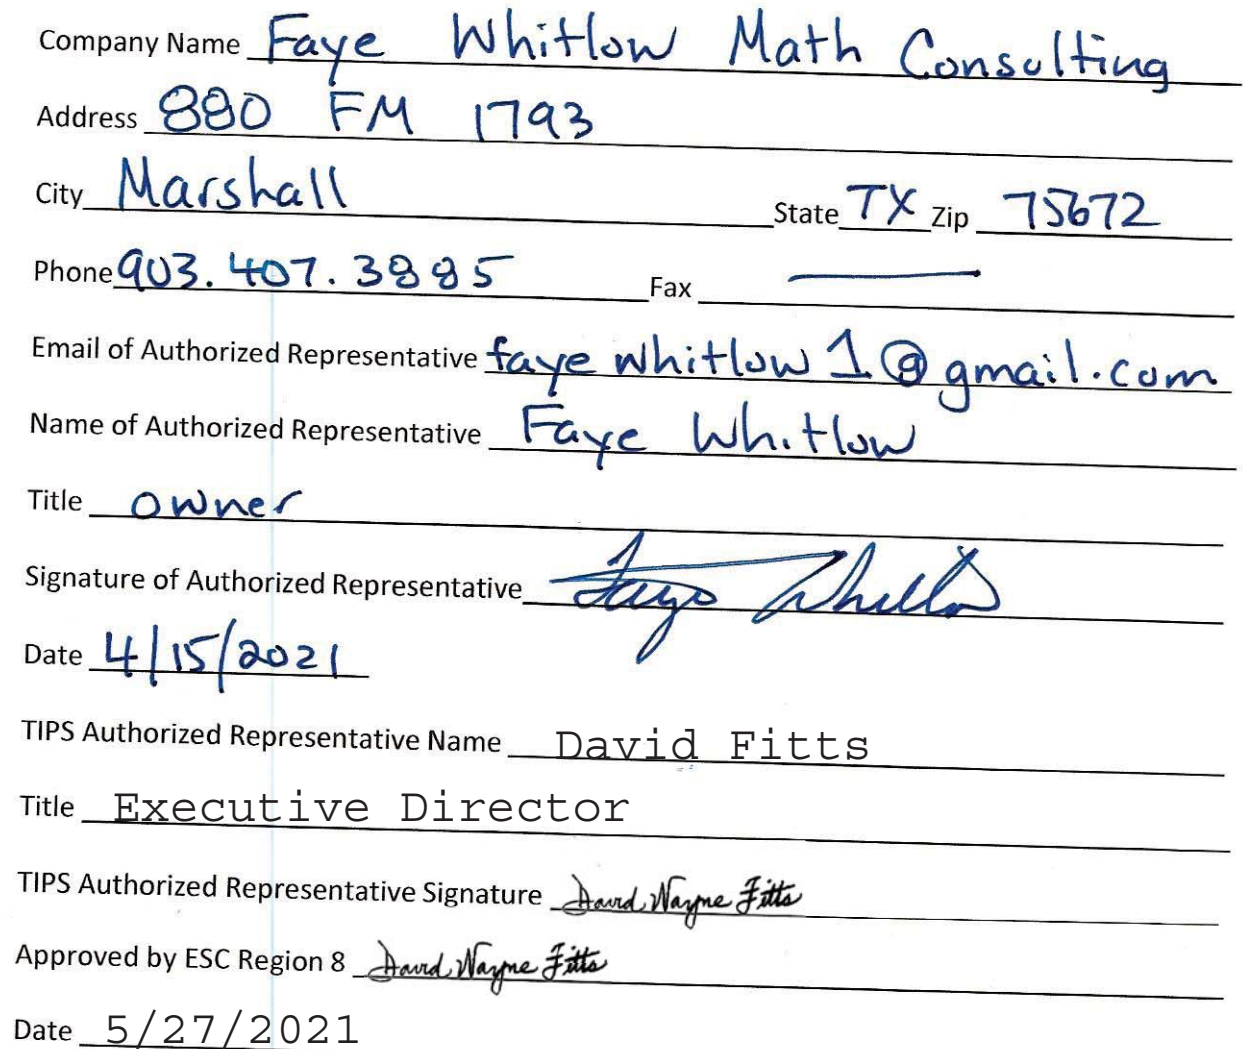 Company Name Faye Whitlow Math Consulting
Address 880 FM 1793
City Marshall State TX Zip 75672
Phone 903.407.3885 Fax —
Email of Authorized Representative fayewhitlow1@gmail.com
Name of Authorized Representative Faye Whitlow
Title owner
Signature of Authorized Representative Faye Whitlow
Date 4/15/2021
TIPS Authorized Representative Name David Fitts
Title Executive Director
TIPS Authorized Representative Signature David Wayne Fitts
Approved by ESC Region 8 David Wayne Fitts
Date 5/27/2021